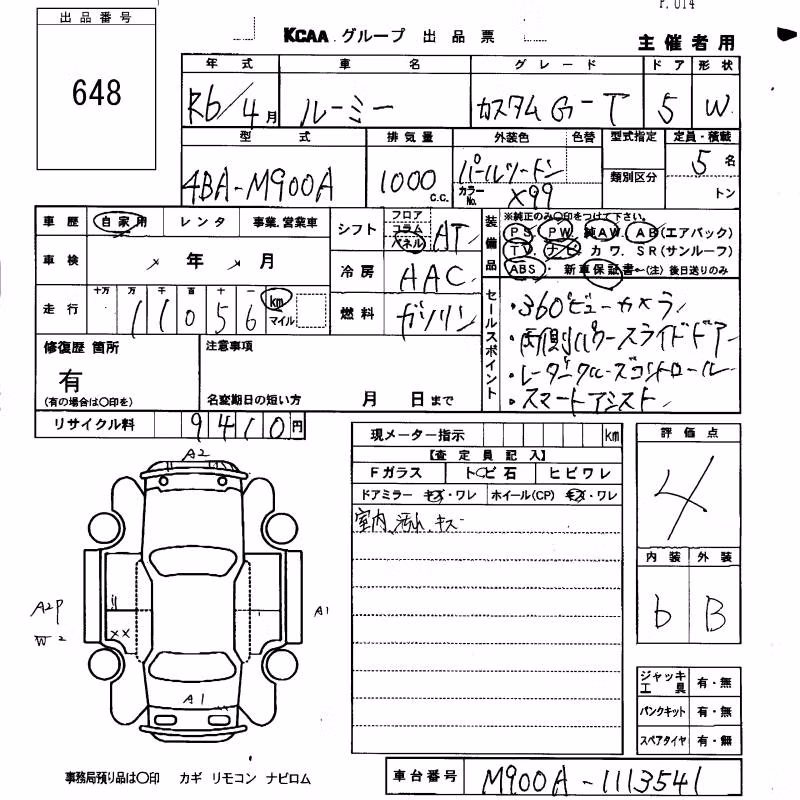 P. 014
出品番号
KCAA グループ 出品票
主催者用
648
年式 車名 グレード ドア 形状
R6/4月 ルーミー カスタム G-T 5 W
型式 排気量 外装色 色替 型式指定 定員・積載
4BA-M900A 1000 c.c. パールツートン 類別区分 5名
カラーNo. X99 トン
車歴 自家用 レンタ 事業.営業車
シフト フロア コラム パネル AT
装備品 ※純正のみ〇印をつけて下さい。
PS. PW. 純AW. AB(エアバック)
TV. ナビ. カワ. SR(サンルーフ)
ABS・新車保証書〜(注)後日送りのみ
車検 年 月
冷房 AAC
走行 十万 万 千 百 十 一 km マイル
11056
燃料 ガソリン
セールスポイント
・360°ビューカメラ
・両側パワースライドドアー
・レーダークルーズコントロール
・スマートアシスト
修復歴 箇所 注意事項
有
(有の場合は〇印を) 名変期日の短い方 月 日まで
リサイクル料 9410円
現メーター指示 km
【査定員記入】
Fガラス トビ石 ヒビワレ
ドアミラー キズ・ワレ ホイール(CP) キズ・ワレ
室内、汚れ、キズ
評価点
4
内装 外装
b B
A2
A2P
W2
A1
XX
A1
ジャッキ工具 有・無
パンクキット 有・無
スペアタイヤ 有・無
事務局預り品は〇印 カギ リモコン ナビロム
車台番号 M900A-1113541